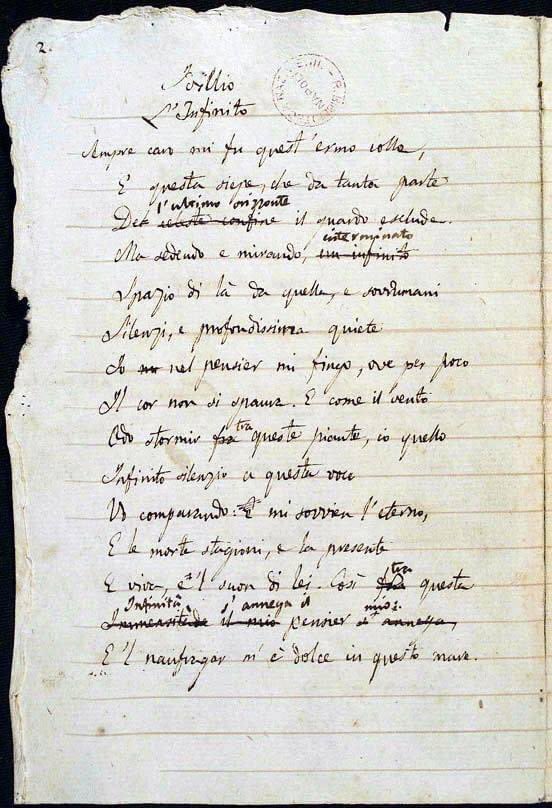 2.
NAPOLI
Idillio
L'Infinito
Sempre caro mi fu quest'ermo colle,
E questa siepe, che da tanta parte
l'ultimo orizzonte
Del celeste confine il guardo esclude.
interminato
Ma sedendo e mirando, un infinito
Spazio di là da quella, e sovrumani
Silenzi, e profondissima quiete
Io nel pensier mi fingo, ove per poco
Il cor non si spaura. E come il vento
tra
Odo stormir fra queste piante, io quello
Infinito silenzio a questa voce
Vo comparando: E mi sovvien l'eterno,
E le morte stagioni, e la presente
tra
E viva, e 'l suon di lei. Così fra questa
Infinità s'annega il mio:
Immensitade il mio pensier s'annega,
E 'l naufragar m'è dolce in questo mare.